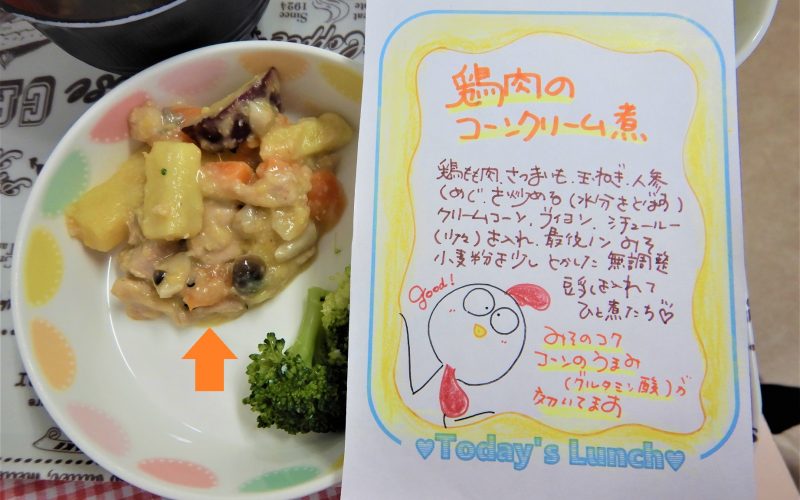 Since
1924
鶏肉の
コーンクリーム煮
鶏もも肉、さつまいも、玉ねぎ、人参
しめじ、を炒める(水分をとばす)
クリームコーン、コンソメ、シチュールー
(少々)を入れ、最後にみそ
小麦粉を少しとかした無調整
豆乳を入れて
ひと煮たち♡
good!
みそのコク
コーンのうまみ
(グルタミン酸)が
効いてます
♥Today's Lunch♥